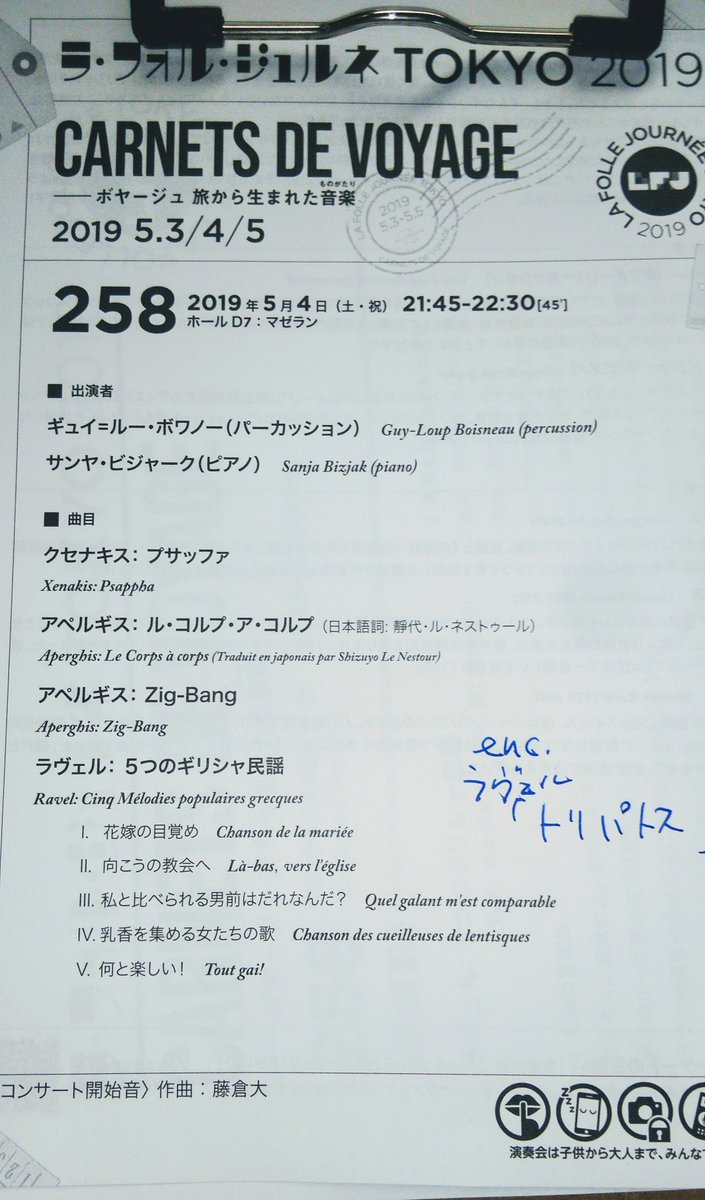 ラ・フォル・ジュルネ TOKYO 2019
CARNETS DE VOYAGE
ボヤージュ 旅から生まれた音楽
ものがたり
2019 5.3/4/5
LA FOLLE JOURNÉE TOKYO
2019
5.3-5.5
CARNETS DE VOYAGE
LA FOLLE JOURNÉE
LFJ
2019
258 2019年5月4日（土・祝） 21:45-22:30[45']
ホールD7：マゼラン
■ 出演者
ギュイ=ルー・ボワノー（パーカッション） Guy-Loup Boisneau (percussion)
サンヤ・ビジャーク（ピアノ） Sanja Bizjak (piano)
■ 曲目
クセナキス： プサッファ
Xenakis: Psappha
アペルギス： ル・コルプ・ア・コルプ（日本語詞: 靜代・ル・ネストゥール）
Aperghis: Le Corps à corps (Traduit en japonais par Shizuyo Le Nestour)
アペルギス： Zig-Bang
Aperghis: Zig-Bang
ラヴェル： 5つのギリシャ民謡
Ravel: Cinq Mélodies populaires grecques
I. 花嫁の目覚め Chanson de la mariée
II. 向こうの教会へ Là-bas, vers l'église
III. 私と比べられる男前はだれなんだ？ Quel galant m'est comparable
IV. 乳香を集める女たちの歌 Chanson des cueilleuses de lentisques
V. 何と楽しい！ Tout gai!
enc.
ラヴェル
トリパトス
コンサート開始音〉 作曲：藤倉大
演奏会は子供から大人まで、みんな